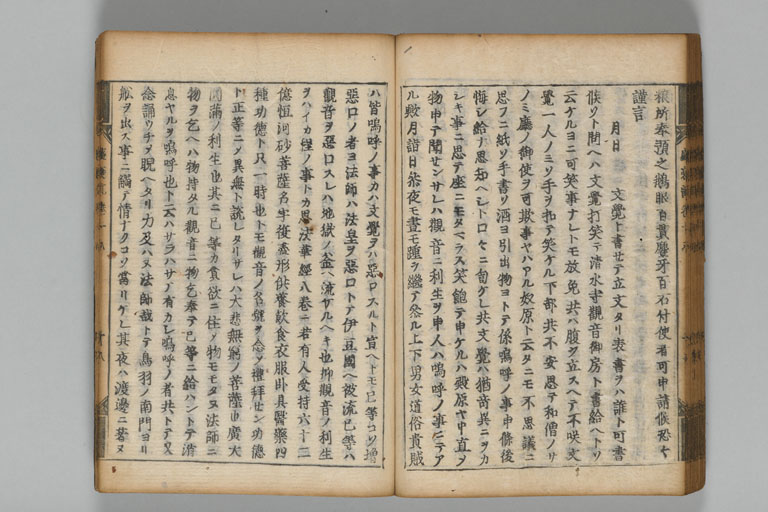 粮所奉預之鵝眼百貫麞牙百石付使者可申請候恐々
謹言
月日 文覺ト書セテ立文タリ表書ヲハ誰ト可書
候ソト問ヘハ文覺打笑テ清水寺觀音御房ト書給ヘトソ
云ケルヨニ可笑事ナレトモ放免共ハ腹ヲ立スヘテ不咲文
覺一人ノミソ手ヲ扣テ笑ケル下部共不安思テ和僧ノソ
ノミ廳ノ御使ヲ可欺事ヤハアル奴原ト云タニモ不思議ニ
思フニ紙ソ手書ソ酒ヨ引出物ヨトテ係嗚呼ノ事申條後
悔シ給ナ思知ヘシト口々ニ匂ケレ共文覺ハ猶興ニヲカ
シキ事ニ思テ座ニモタヘラス笑テ申ケルハ殿原ヤ申直ヲ
物申テ聞センサレハ觀音ニ利生ヲ申人ハ嗚呼ノ事ニテア
ル歟月詣日參夜モ晝モ踵ヲ繼テ參ル上下男女道俗貴賤
ハ皆嗚呼ノ事カハ文覺ヲハ惡口スルト宣ヘトモ己等コソ増
惡口ノ者ヨ法師ハ法皇ヲ惡口トテ伊豆國ヘ被流己等ハ
觀音ヲ惡口スレハ地獄ノ釜ヘ流サルヘキ也抑觀音ノ利生
ヲハイカ程ノ事トカ思法華經八卷ニ若有人受持六十二
億恒河砂菩薩名字復盡形供養飲食衣服臥具醫藥四
種功徳ト只一時也トモ觀音ノ名號ヲ念シ禮拜セン功徳
ト正等ニメ異無ト説レタリサレハ大悲無窮ノ菩薩也廣大
圓滿ノ利生也其ニ己等カ貪欲ニ住メ物モモタヌ法師ニ
物ヲ乞ヘハ物持タル觀音ニ物乞奉テ己等ニ給ハントテ消
息ヤルヲ嗚呼也ト云ハサラハサテ有カレ嗚呼ノ者共トテ又
念誦ウチヲ睨ヘタリ力及ハヌ法師哉トテ鳥羽ノ南門ヨリ
舩ヲ出ス事ニ觸テ情ナクコソ當リケレ其夜ハ渡邊ニ着ヌ